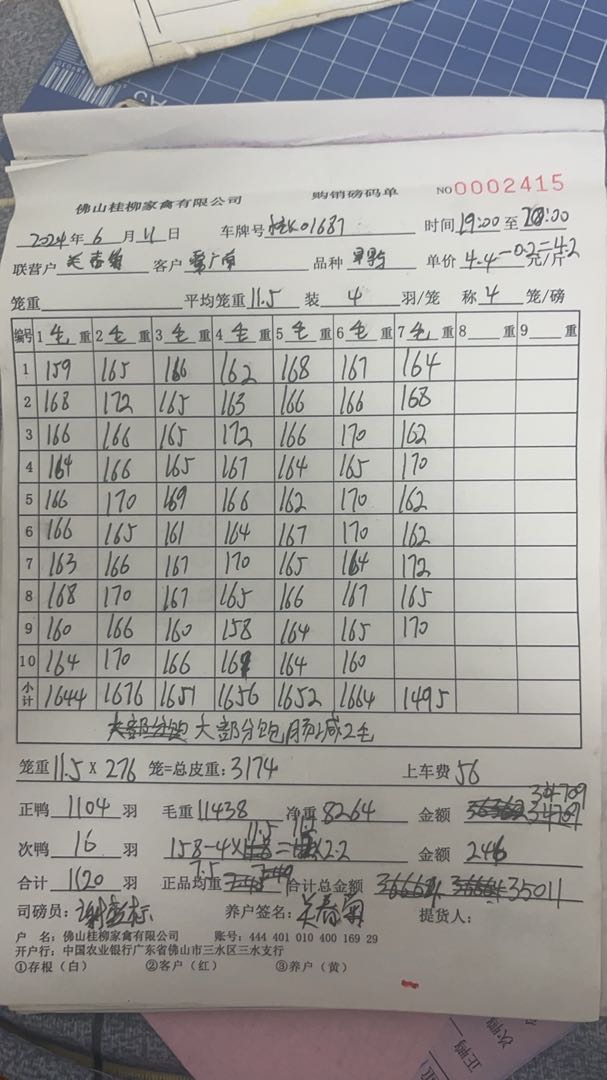 佛山桂柳家禽有限公司 购销磅码单 NO0002415
2024年6月11日 车牌号 01687 时间19:00至20:00
联营户 客户 品种 单价4.4-0.2=4.2元/斤
笼重 平均笼重11.5 装4羽/笼 称4笼/磅
编号 1毛重 2毛重 3毛重 4毛重 5毛重 6毛重 7毛重 8重 9重
1 159 165 166 162 168 167 164
2 168 172 165 163 166 166 168
3 166 166 165 172 166 170 162
4 164 166 165 167 164 165 170
5 166 170 169 166 162 170 162
6 166 165 161 164 167 170 162
7 163 166 167 170 165 164 172
8 168 170 167 165 166 167 165
9 160 166 160 158 164 165 170
10 164 170 166 169 164 160
小计 1644 1676 1651 1656 1652 1664 1495
大部分饱 大部分饱,肠减2毛
笼重11.5×276笼=总皮重:3174 上车费56
34709
正鸭1104羽 毛重11438 净重8264 金额 34709
11.5
次鸭16羽 158-4× = ×2.2 金额246
7.5
合计1120羽 正品均重 合计总金额 35011
司磅员: 养户签名: 提货人:
户 名:佛山桂柳家禽有限公司 账号:444 401 010 400 169 29
开户行:中国农业银行广东省佛山市三水区三水支行
①存根(白) ②客户(红) ③养户(黄)